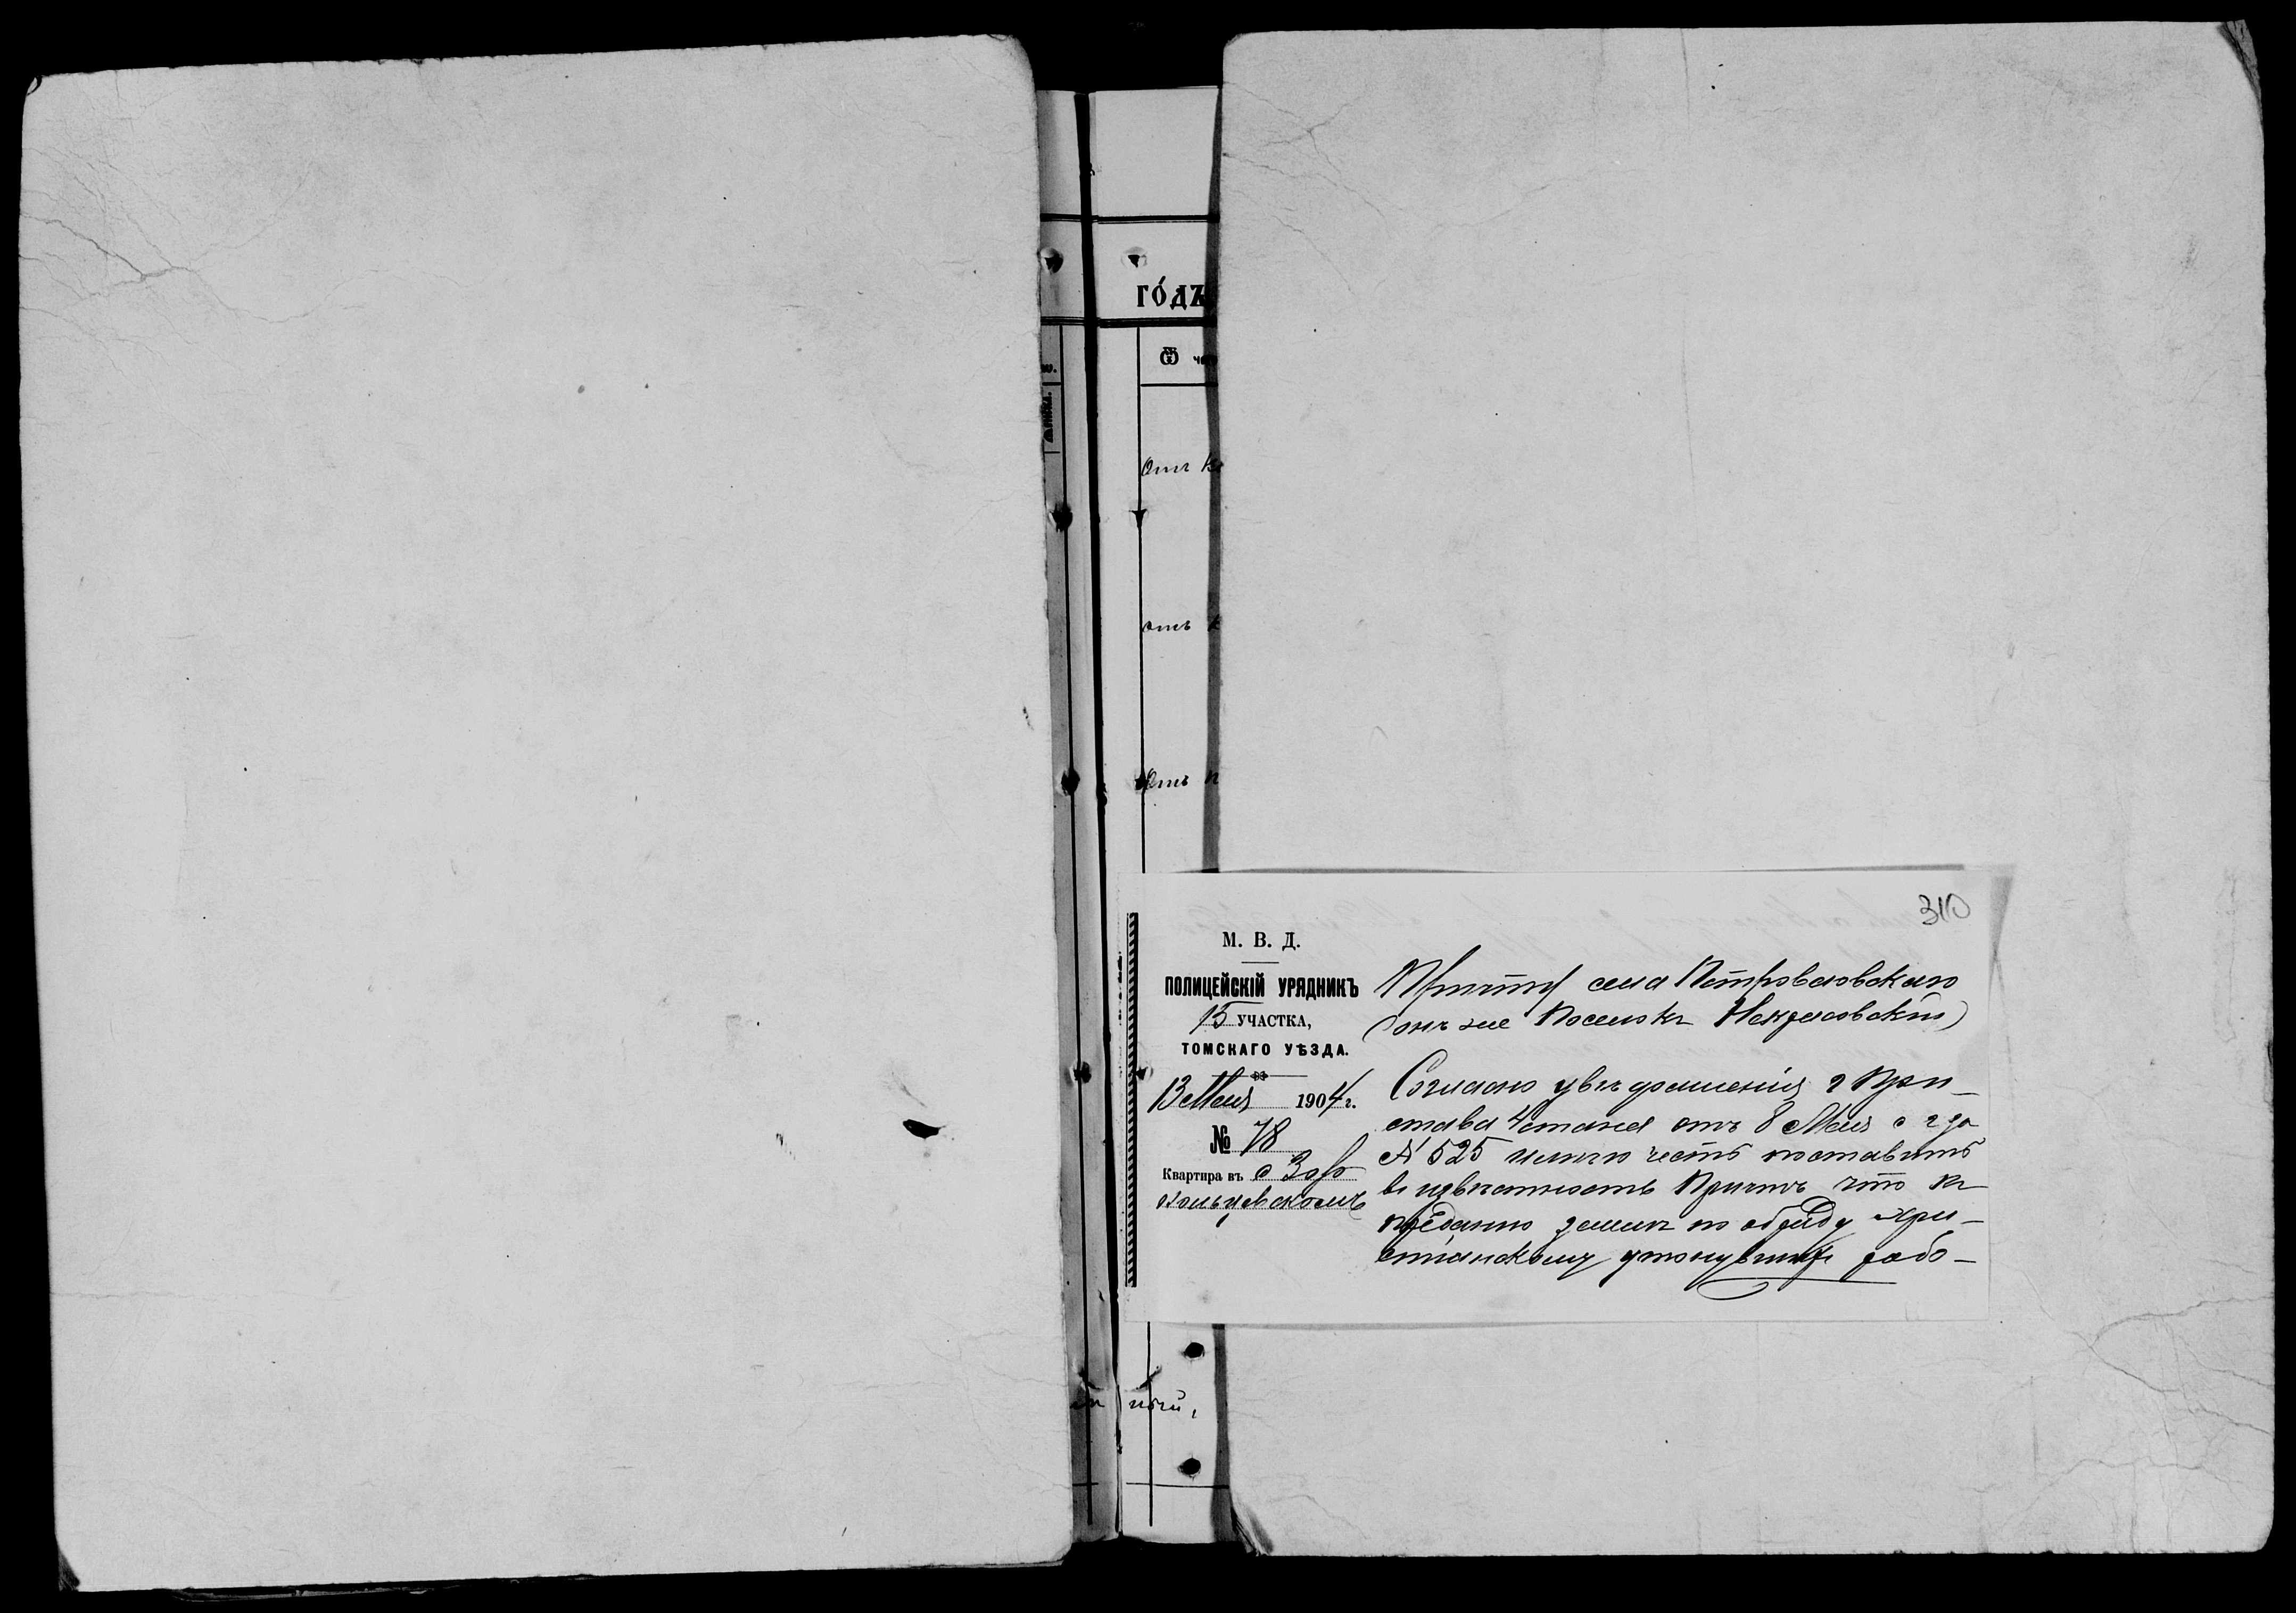 ГО́ДЪ
Ѿ че
отъ к
отъ к
отъ к
ный,
310
М. В. Д.
ПОЛИЦЕЙСКІЙ УРЯДНИКЪ
15 УЧАСТКА,
ТОМСКАГО УѢЗДА.
13 Мая 1904 г.
№ 78
Квартира въ с Золо
Причту села Петровловскаго
(онъ же Поселокъ Некрасовскій)
Согласно увѣдомленія г При-
става 4 стана отъ 8 Мая с г за
№ 525 имѣю честь поставить
въ извѣстность Причтъ что къ
преданію землѣ по обряду хри-
стіанскому утонувших рабо-